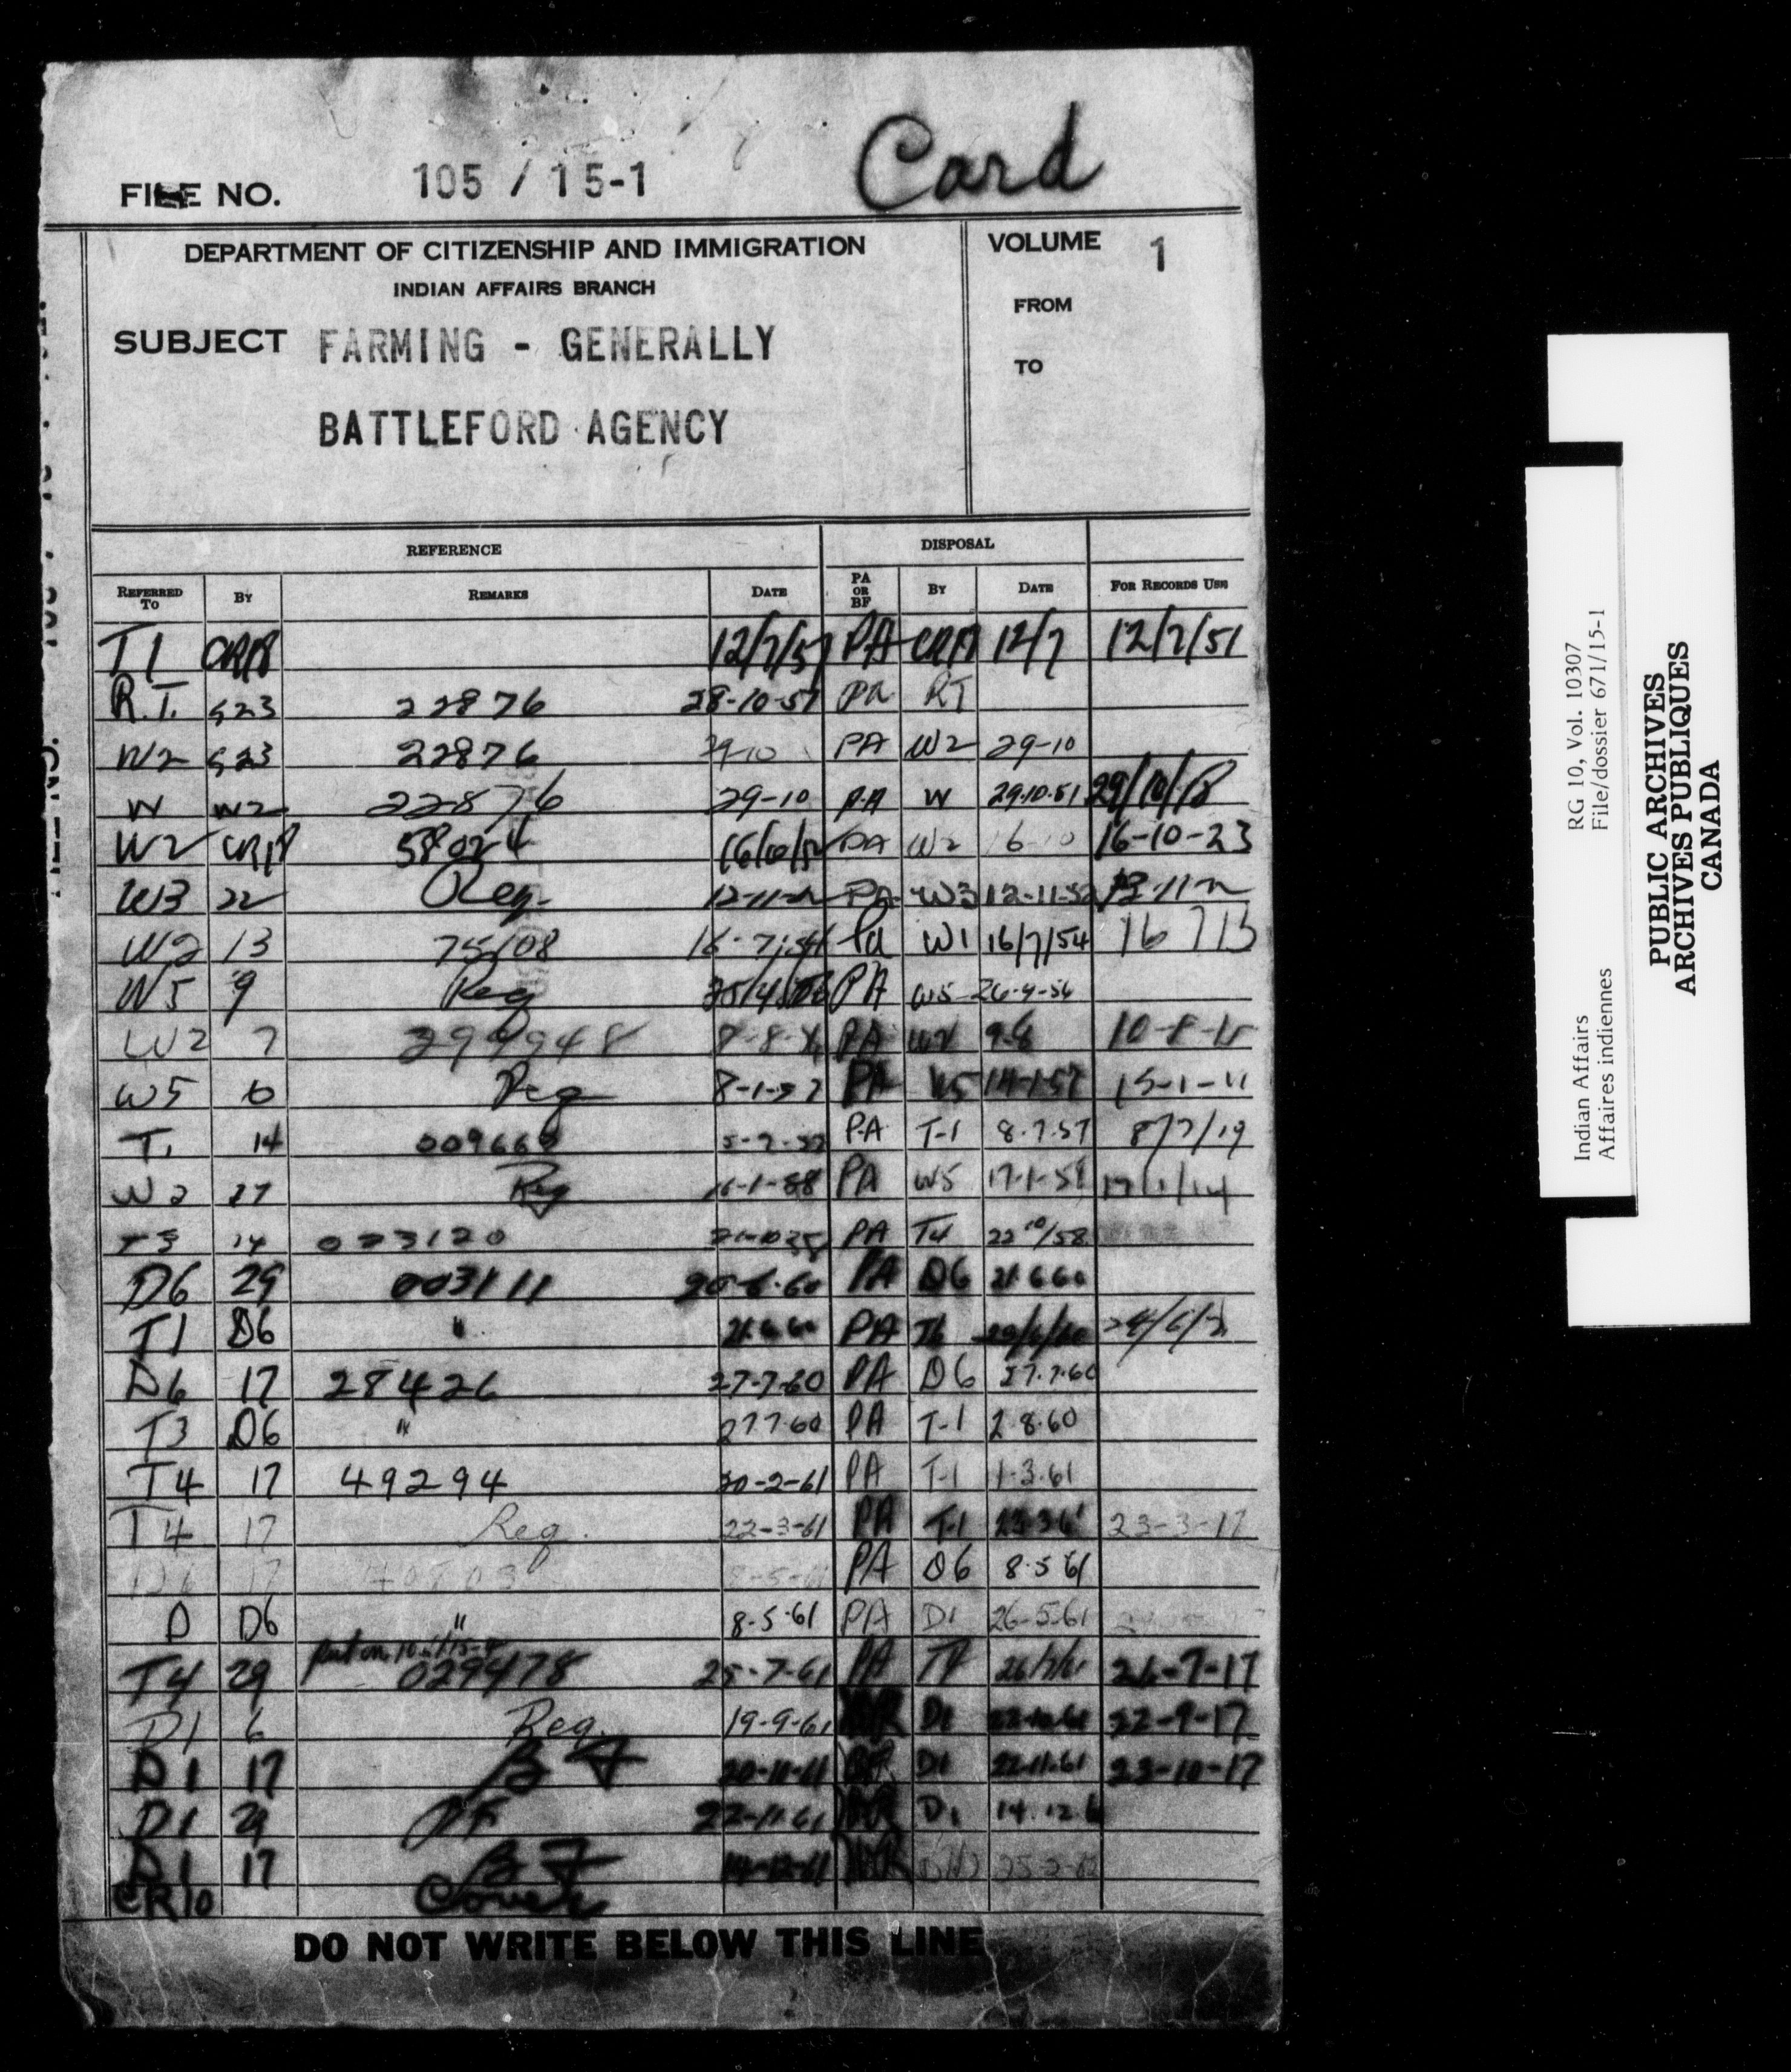 Card
FILE NO. 105 / 15-1
DEPARTMENT OF CITIZENSHIP AND IMMIGRATION
INDIAN AFFAIRS BRANCH
SUBJECT FARMING - GENERALLY
BATTLEFORD AGENCY
VOLUME 1
FROM
TO
REFERENCE DISPOSAL
REFERRED TO BY REMARKS DATE PA OR BF BY DATE FOR RECORDS USE
T1 CR18 12/7/51 PA CR18 12/7 12/7/51
R.T. S23 22876 28-10-51 PA RT
W2 S23 22876 29-10 PA W2 29-10
W W2 22876 29-10 PA W 29.10.51 29/10/18
W2 CR18 58024 16/10/52 PA W2 16-10 16-10-23
W3 22 Req 12-11-52 PA W3 12-11-52
W2 13 75108 16-7-54 PA W1 16/7/54 16 7 13
W5 9 Req 25/4/56 PA W5 26-4-56
W2 7 PA W2 9-8
W5 6 Req 8-1-57 PA W5 14-1-57 15-1-11
T1 14 009669 5-7-57 PA T-1 8.7.57 8/7/19
W2 27 Req 16-1-58 PA W5 17-1-58 17/1/14
T3 14 023120 21-10-58 PA T4 22 10/58
D6 29 003111 20-6-60 PA D6 21.6.60
T1 D6 " 21.6.60 PA
D6 17 28426 27-7-60 PA D6 27.7.60
T3 D6 " 27 7 60 PA T-1 2.8.60
T4 17 49294 20-2-61 PA T-1 1.3.61
T4 17 Req. 22-3-61 PA T-1 23-3-17
D6 17 8-5-61 PA D6 8.5 61
D D6 " 8.5.61 PA D1 26-5-61
T4 29 029478 25-7-61 PA 26/7/61 26-7-17
D1 6 Req. 19-9-61 D1 22-9-17
D1 17 BF 20-11-61 D1 22.11.61 23-10-17
D1 29 BF 22-11-61 D1 14.12.6
D1 17 BF 14-12-61
CR10 Cover
DO NOT WRITE BELOW THIS LINE
Indian Affairs RG 10, Vol. 10307
Affaires indiennes File/dossier 671/15-1
PUBLIC ARCHIVES
ARCHIVES PUBLIQUES
CANADA